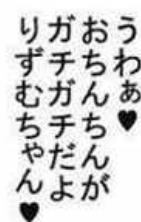 うわぁ♥
おちんちんが
ガチガチだよ
りずむちゃん♥